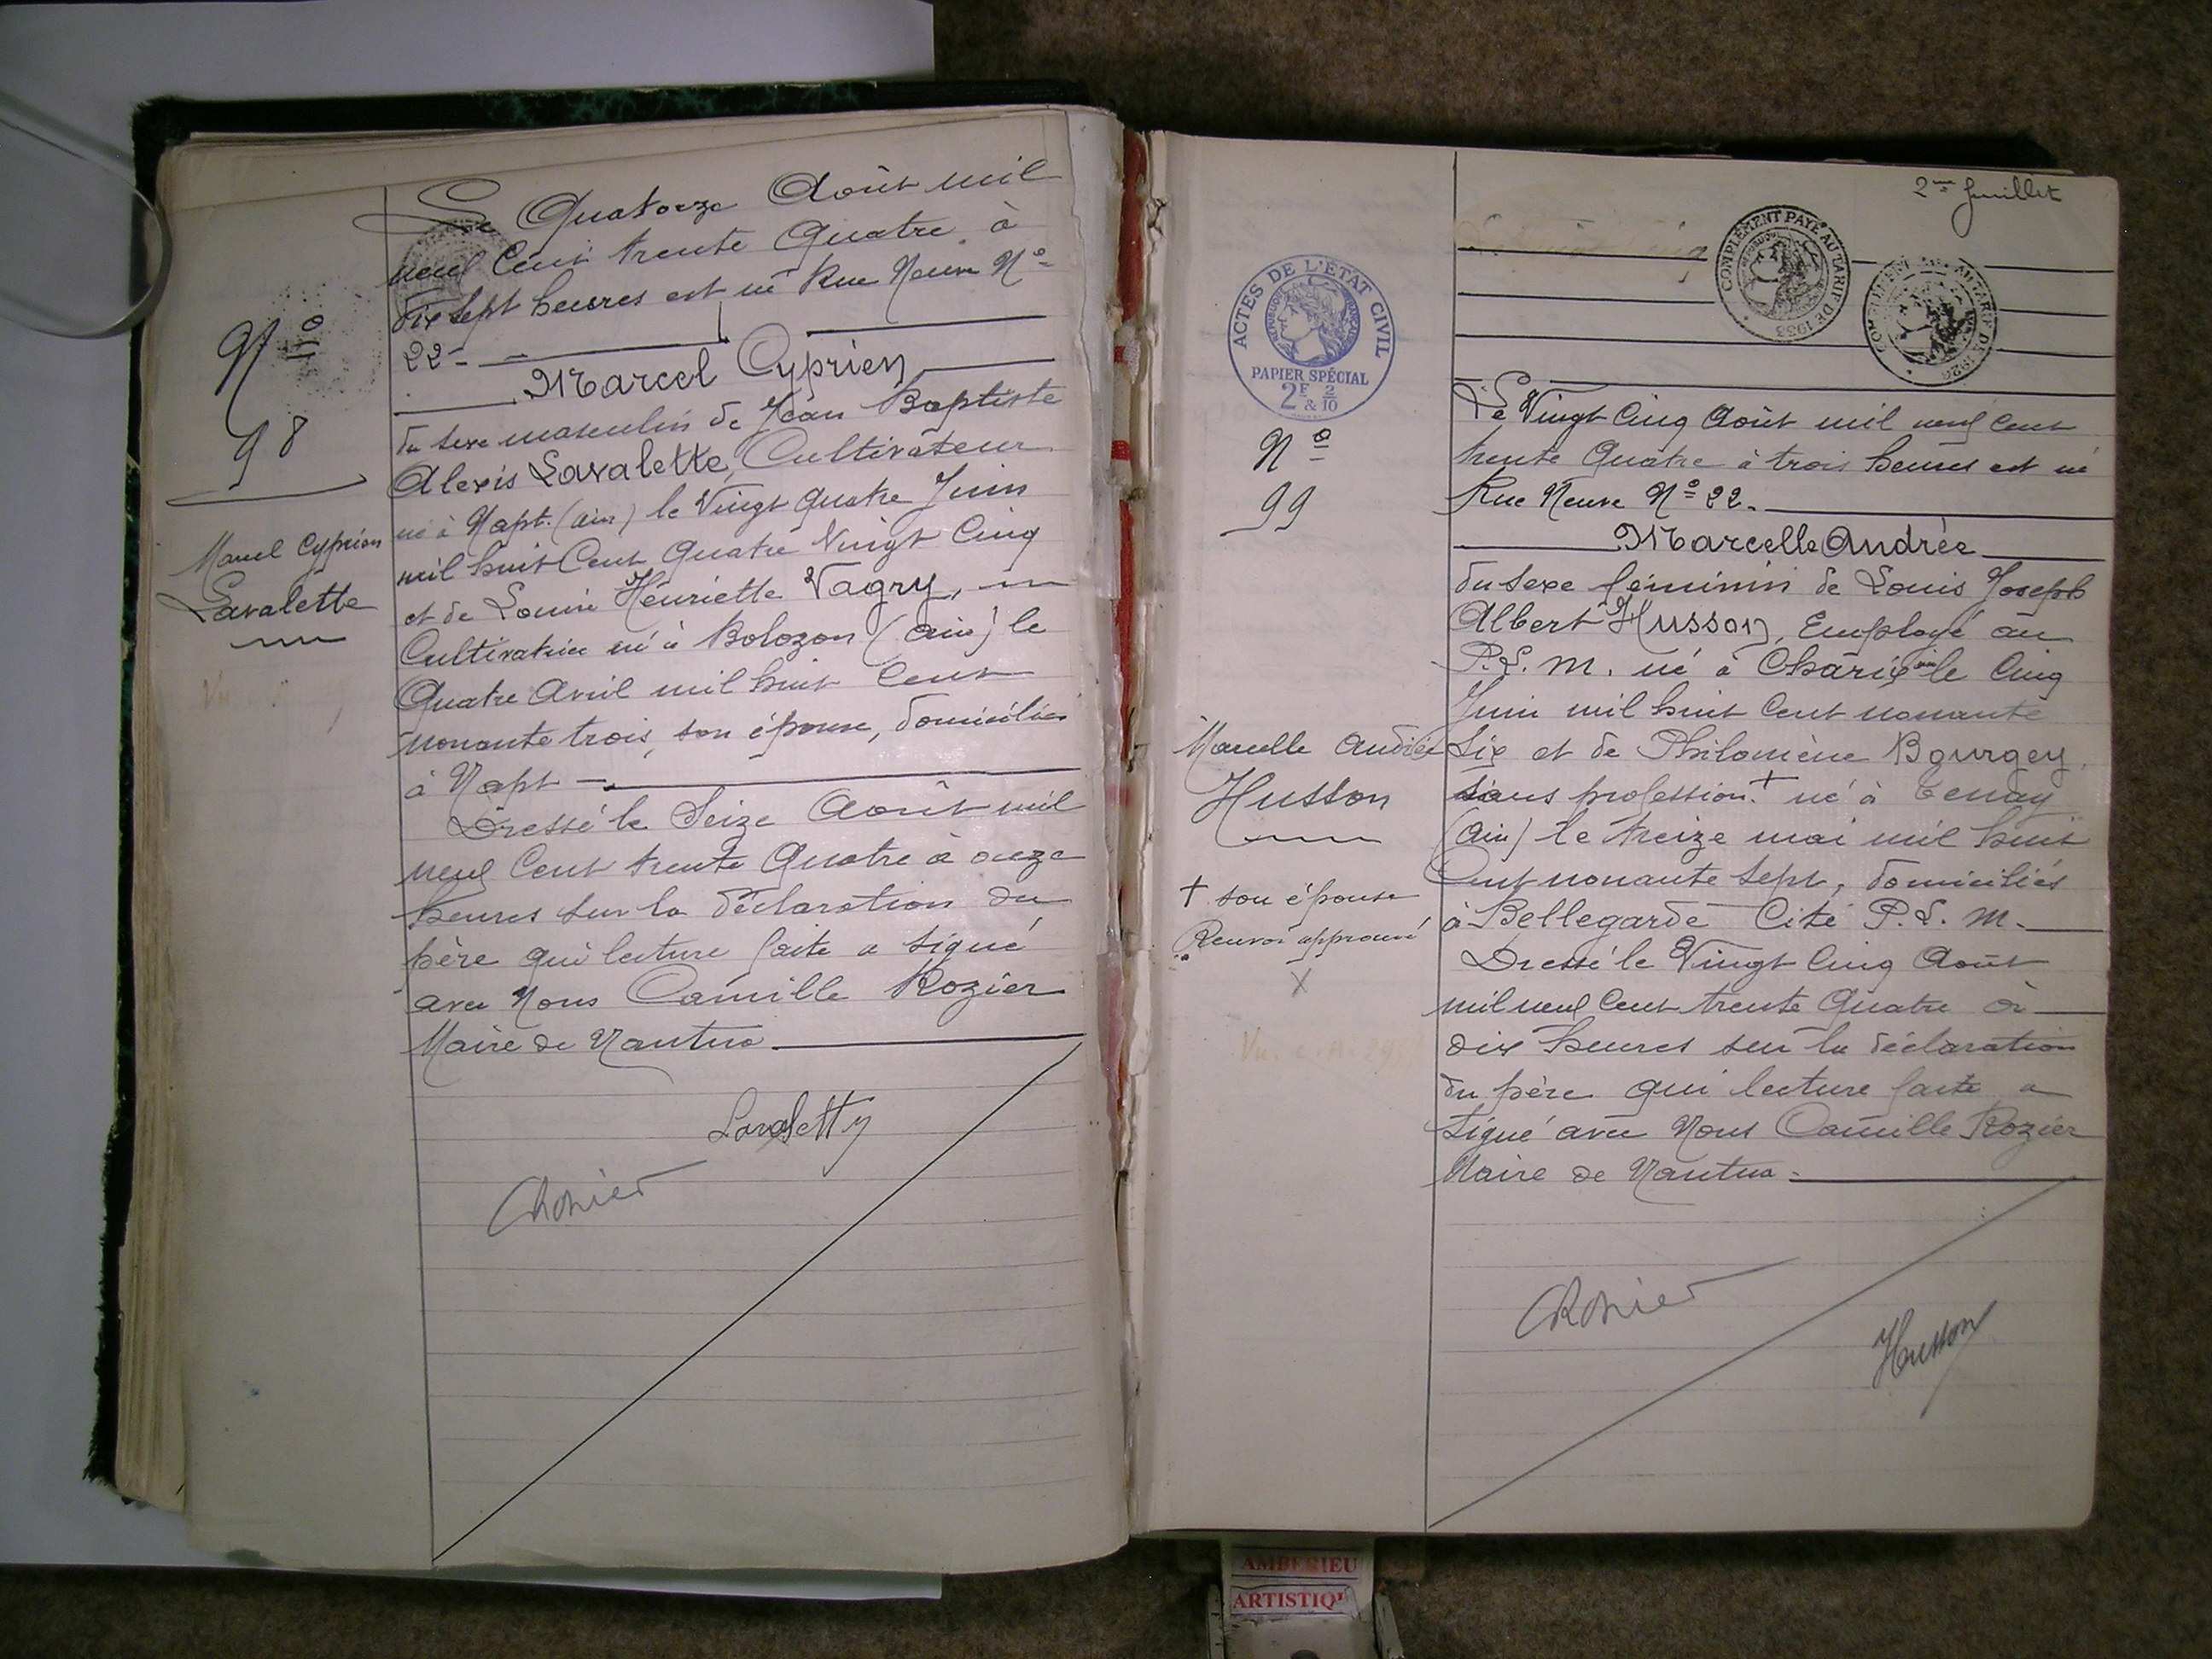 Le Quatorze Août mil
neuf Cent trente Quatre à
dix sept heures est né Rue Neuve Nº
22 -
Marcel Cyprien
du sexe masculin de Jean Baptiste
Alexis Lavalette, Cultivateur
né à Napt. (Ain) le Vingt quatre Juin
mil huit Cent Quatre Vingt Cinq
et de Louise Henriette Vagry,
Cultivatrice né à Bolozon (Ain) le
Quatre Avril mil huit Cent
nonante trois, son épouse, domiciliés
à Napt -
Dressé le Seize Août mil
neuf Cent trente Quatre à onze
heures sur la déclaration du
père qui lecture faite a signé
avec Nous Camille Rozier
Maire de Nantua
Nº
98
Marcel Cyprien
Lavalette
Vu
Lavalette
CRozier
2me feuillet
COMPLÉMENT PAYÉ AU TARIF DE 1933
ACTES DE L'ÉTAT CIVIL
PAPIER SPÉCIAL
2F & 2/10
Nº
99
Marcelle Andrée
Husson
+ son épouse
Renvoi approuvé
X
Vu
Le Vingt Cinq Août mil neuf Cent
trente Quatre à trois heures est né
Rue Neuve Nº 22.
Marcelle Andrée
du sexe féminin de Louis Joseph
Albert Husson, Employé au
P.L.M. né à Charix ain le Cinq
Juin mil huit Cent nonante
Six et de Philomène Bourgey,
sans profession + né à Tenay
(Ain) le treize mai mil huit
Cent nonante sept, domiciliés
à Bellegarde Cité P.L.M.
Dressé le Vingt Cinq Août
mil neuf Cent trente Quatre à
dix heures sur la déclaration
du père qui lecture faite a
signé avec Nous Camille Rozier
Maire de Nantua -
CRozier
Husson
AMBERIEU
ARTISTIQ